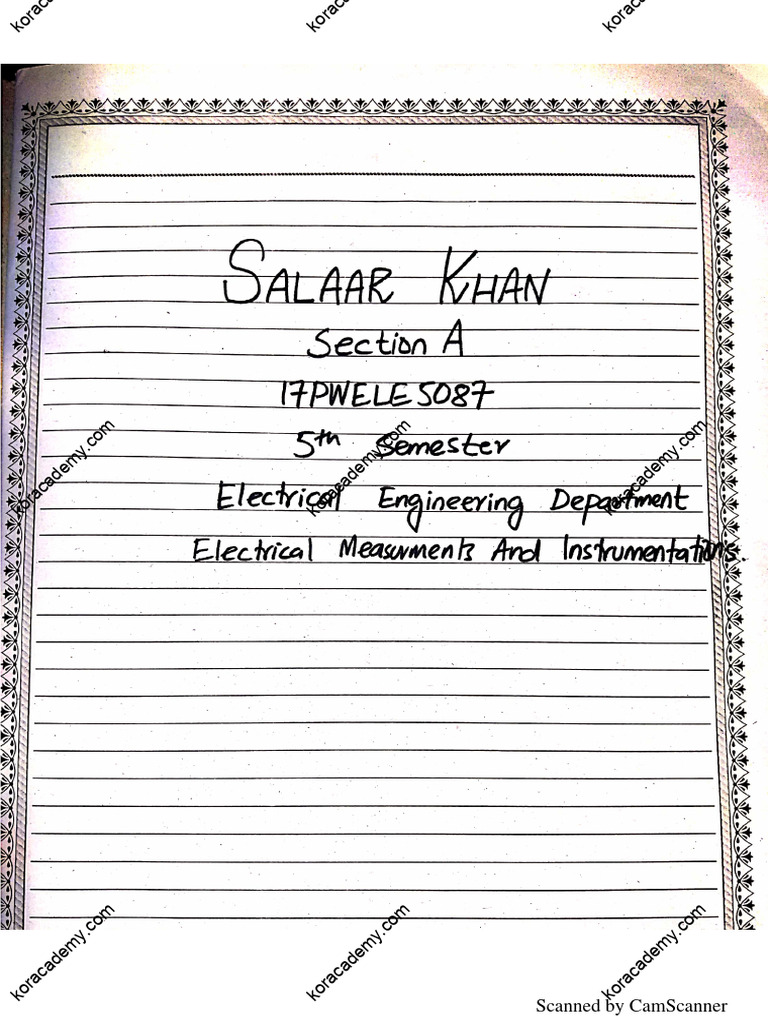 koracademy.com koracademy.com koracademy.com
SALAAR KHAN
Section A
17PWELE5087
5th Semester
koracademy.com koracademy.com koracademy.com
Electrical Engineering Department
Electrical Measurments And Instrumentations.
koracademy.com koracademy.com koracademy.com
Scanned by CamScanner